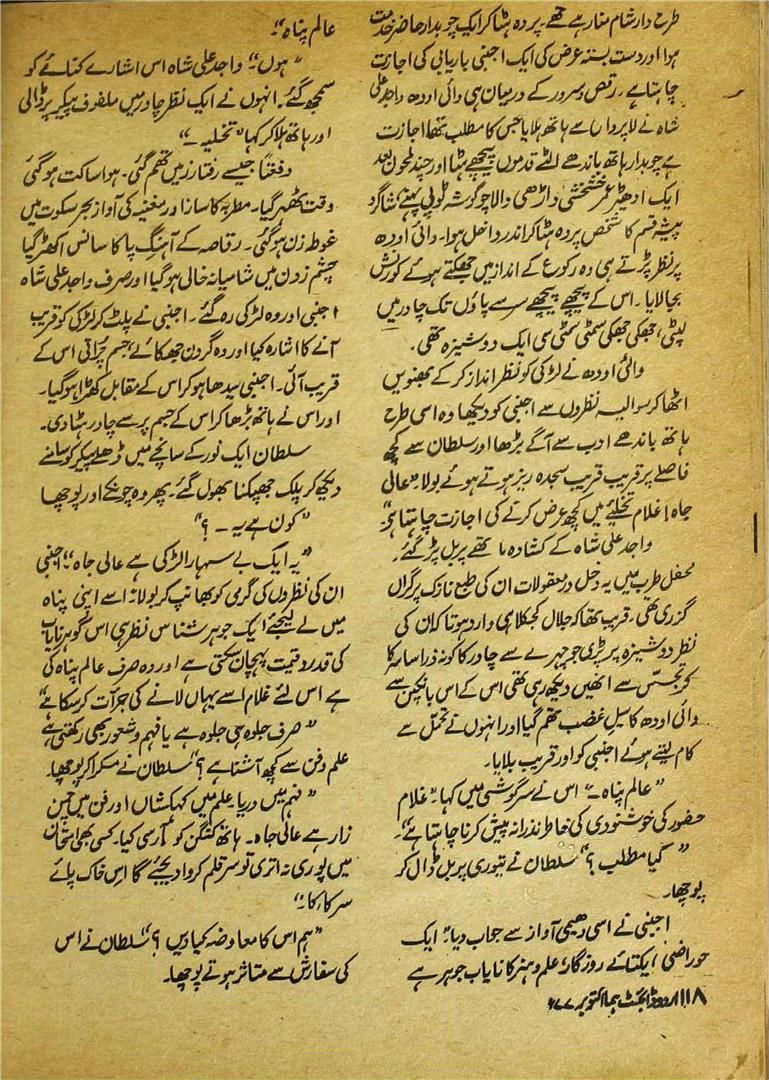 طرح دار شام منا رہے تھے۔ پردہ ہٹا کر ایک چوبدار حاضر خدمت
ہوا اور دست بستہ عرض کی ایک اجنبی باریابی کی اجازت
چاہتا ہے۔ رقص و سرور کے درمیان ہی والئ اودھ واجد علی
شاہ نے لاپرواہی سے ہاتھ ہلایا جس کا مطلب تھا اجازت
ہے چوبدار ہاتھ باندھے الٹے قدموں پیچھے ہٹا اور چند لمحوں بعد
ایک ادھیڑ عمر خشخشی داڑھی والا چوگوشہ ٹوپی پہنے شاگرد
پیشہ قسم کا شخص پردہ ہٹا کر اندر داخل ہوا۔ والئ اودھ
پر نظر پڑتے ہی وہ رکوع کے انداز میں جھکتے ہوئے کورنش
بجا لایا۔ اس کے پیچھے پیچھے سر سے پاؤں تک چادر میں
لپٹی، جھکی جھکی سمٹی سمٹی سی ایک دوشیزہ تھی۔
والئ اودھ نے لڑکی کو نظر انداز کر کے بھنویں
اٹھا کر سوالیہ نظروں سے اجنبی کو دیکھا وہ اسی طرح
ہاتھ باندھے ادب سے آگے بڑھا اور سلطان سے کچھ
فاصلے پر قریب قریب سجدہ ریز ہوتے ہوئے بولا۔ "عالی
جاہ! غلام تخلیئے میں کچھ عرض کرنے کی اجازت چاہتا ہے"۔
واجد علی شاہ کے کشادہ ماتھے پر بل پڑ گئے۔
محفل طرب میں یہ دخل در معقولات ان کی طبع نازک پر گراں
گزری تھی۔ قریب تھا کہ جلال کجکلاہی وارد ہوتا کہ ان کی
نظر دوشیزہ پر پڑی جو چہرے سے چادر کا کونہ ذرا سا سرکا
کر تجسّس سے انھیں دیکھ رہی تھی اس کے اس بانکپن سے
والئ اودھ کا سیلِ غضب تھم گیا اور انہوں نے تحمّل سے
کام لیتے ہوئے اجنبی کو اور قریب بلایا۔
"عالم پناہ۔" اس نے سرگوشی میں کہا۔ "غلام
حضور کی خوشنودی کی خاطر نذرانہ پیش کرنا چاہتا ہے"۔
"کیا مطلب؟" سلطان نے تیوری پر بل ڈال کر
پوچھا۔
اجنبی نے اسی دھیمی آواز سے جواب دیا۔ "ایک
حور ارضی! یکتائے روزگار، علم و ہنر کا نایاب جوہر ہے
۱۱۸ اردو ڈائجسٹ ہما اکتوبر ۷۷ء
عالم پناہ"۔
"ہوں"۔ واجد علی شاہ اس اشارے کنائے کو
سمجھ گئے۔ انہوں نے ایک نظر چادر میں ملفوف پیکر پر ڈالی
اور ہاتھ ہلا کر کہا "تخلیہ۔"
دفعتاً جیسے رفتار زمیں تھم گئی۔ ہوا ساکت ہو گئی
وقت ٹھہر گیا۔ مطربہ کا ساز اور مغنیہ کی آواز بحر سکوت میں
غوطہ زن ہو گئی۔ رقاصہ کے آہنگِ پا کا سانس اکھڑ گیا
چشم زدن میں شامیانہ خالی ہو گیا اور صرف واجد علی شاہ
اجنبی اور وہ لڑکی رہ گئے۔ اجنبی نے پلٹ کر لڑکی کو قریب
آنے کا اشارہ کیا اور وہ گردن جھکائے، جسم چراتی اس کے
قریب آئی۔ اجنبی سیدھا ہو کر اس کے مقابل کھڑا ہو گیا۔
اور اس نے ہاتھ بڑھا کر اس کے جسم پر سے چادر ہٹا دی۔
سلطان ایک نور کے سانچے میں ڈھلے پیکر کو سامنے
دیکھ کر پلک جھپکنا بھول گئے۔ پھر وہ چونکے اور پوچھا
"کون ہے یہ۔؟"
"یہ ایک بے سہارا لڑکی ہے عالی جاہ"۔ اجنبی
ان کی نظروں کی گرمی کو بھانپ کر بولا۔ "اسے اپنی پناہ
میں لے لیجئے ایک جوہر شناس نظر ہی اس گوہر نایاب
کی قدر و قیمت پہچان سکتی ہے اور وہ صرف عالم پناہ کی
ہے اس لئے غلام اسے یہاں لانے کی جرأت کر سکا ہے"
"صرف جلوہ ہی جلوہ ہے یا فہم و شعور بھی رکھتی ہے
علم و فن سے کچھ آشنا ہے؟" سلطان نے مسکرا کر پوچھا۔
"فہم میں دریا، علم میں کہکشاں اور فن میں چمن
زار ہے عالی جاہ۔ ہاتھ کنگن کو آرسی کیا۔ کسی بھی امتحان
میں پوری نہ اتری تو سر قلم کروا دیجئے گا اس خاک پائے
سرکار کا۔"
"ہم اس کا معاوضہ کیا دیں؟" سلطان نے اس
کی سفارش سے متاثر ہوتے پوچھا۔